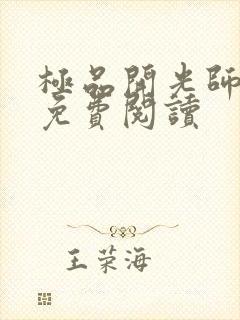 極品開光師
免費閱讀
王荣海